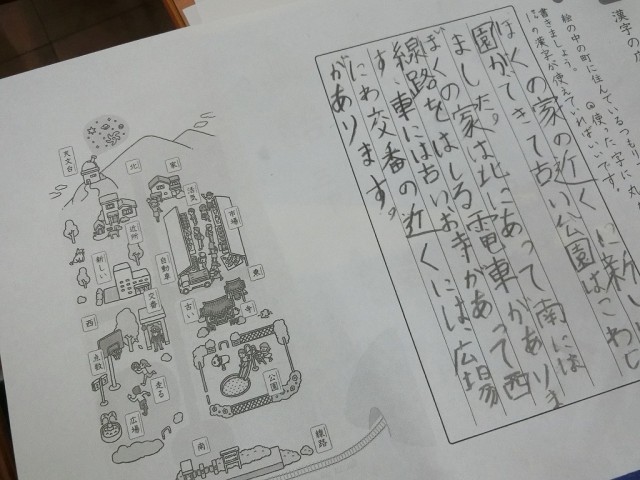 漢字の
絵の中の町に住んでいるつもり
書きましょう。
使った字に
の漢字が使えていればいいです。
ぼくの家の近くに新しい
園ができて古い公園はこわし
ました。
ぼくの家は北にあって南には
線路をはしる電車がありま
す、車には古いお寺があって西
にわ交番の近くには広場
があります。
天文台
北
家
活気
市場
近所
新しい
自動車
東
交番
古い
寺
西
点数
走る
公園
広場
南
線路